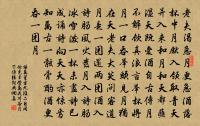 老夫渴急月更急酒落
杯中月先入領取青天
并入來和月和天都蘸
濕天既愛酒自古傳月
不解飲真浪言舉杯將
月一口吞舉頭見月猶
在天老夫大笑問客道
月是一團還兩團酒入
詩腸風火發月入詩腸
冰雪潑一杯未盡詩已
成誦詩向天天亦驚焉
知萬古一骸骨酌酒更
吞一團月